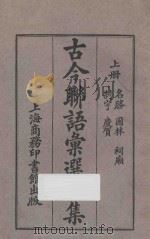 上冊
名勝 園林 祠廟
宇 慶賀
古今聯語彙選
集
上海商務印書館出版